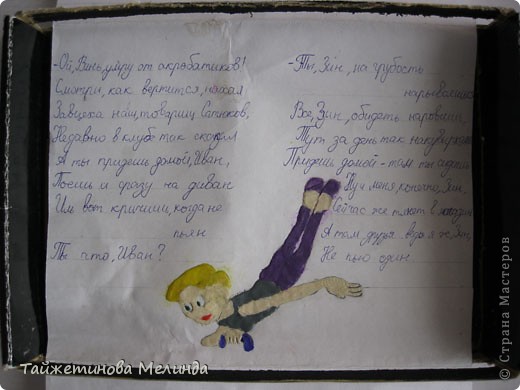 -Ой, Вань, умру от акрабатиков!
Смотри, как вертится, нахал
Завцеха наш, товарищ Сатиков,
Недавно в клубе так скакал
А ты придешь домой, Иван,
Поешь и сразу на диван
Иль вот кричишь, когда не
пьян
Ты что, Иван?
-Ты, Зин, на грубость
нарываешься
Все, Зин, обидеть норовишь
Тут за день так накувыркаешься
Придешь домой - там ты сидишь
Ну и меня, конечно, Зин,
Сейчас же тянет в магазин
А там друзья ведь я ж, Зин,
Не пью один.
Тайжетинова Мелинда
© Страна Мастеров